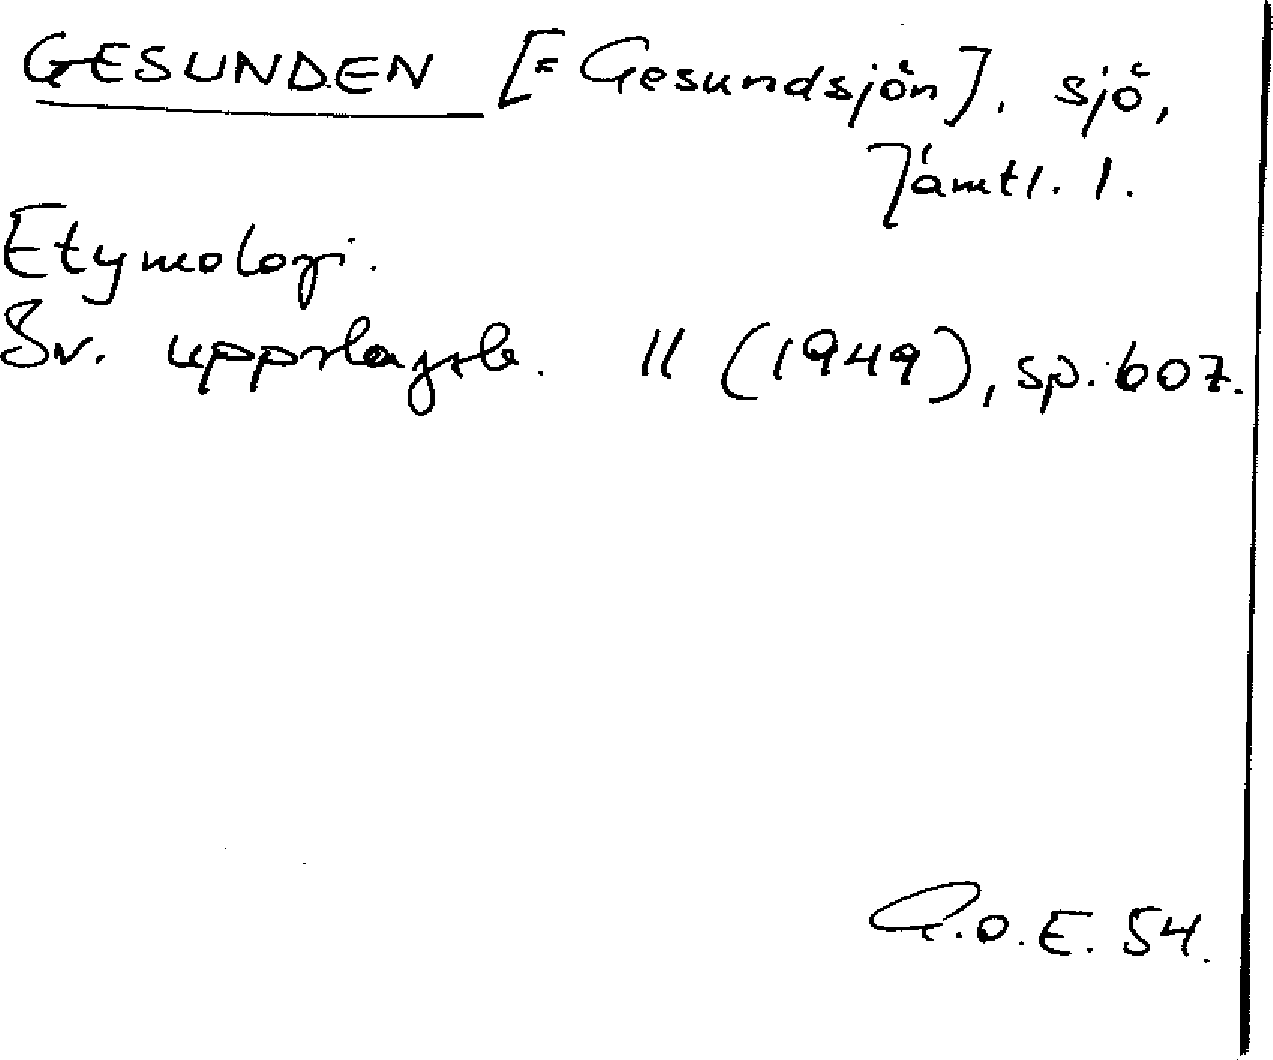 GESUNDEN [= Gesundsjön], sjö,
Jämtl. l.
Etymologi.
Sv. uppslagsb. 11 (1949), sp. 607.
G.O.E. 54.